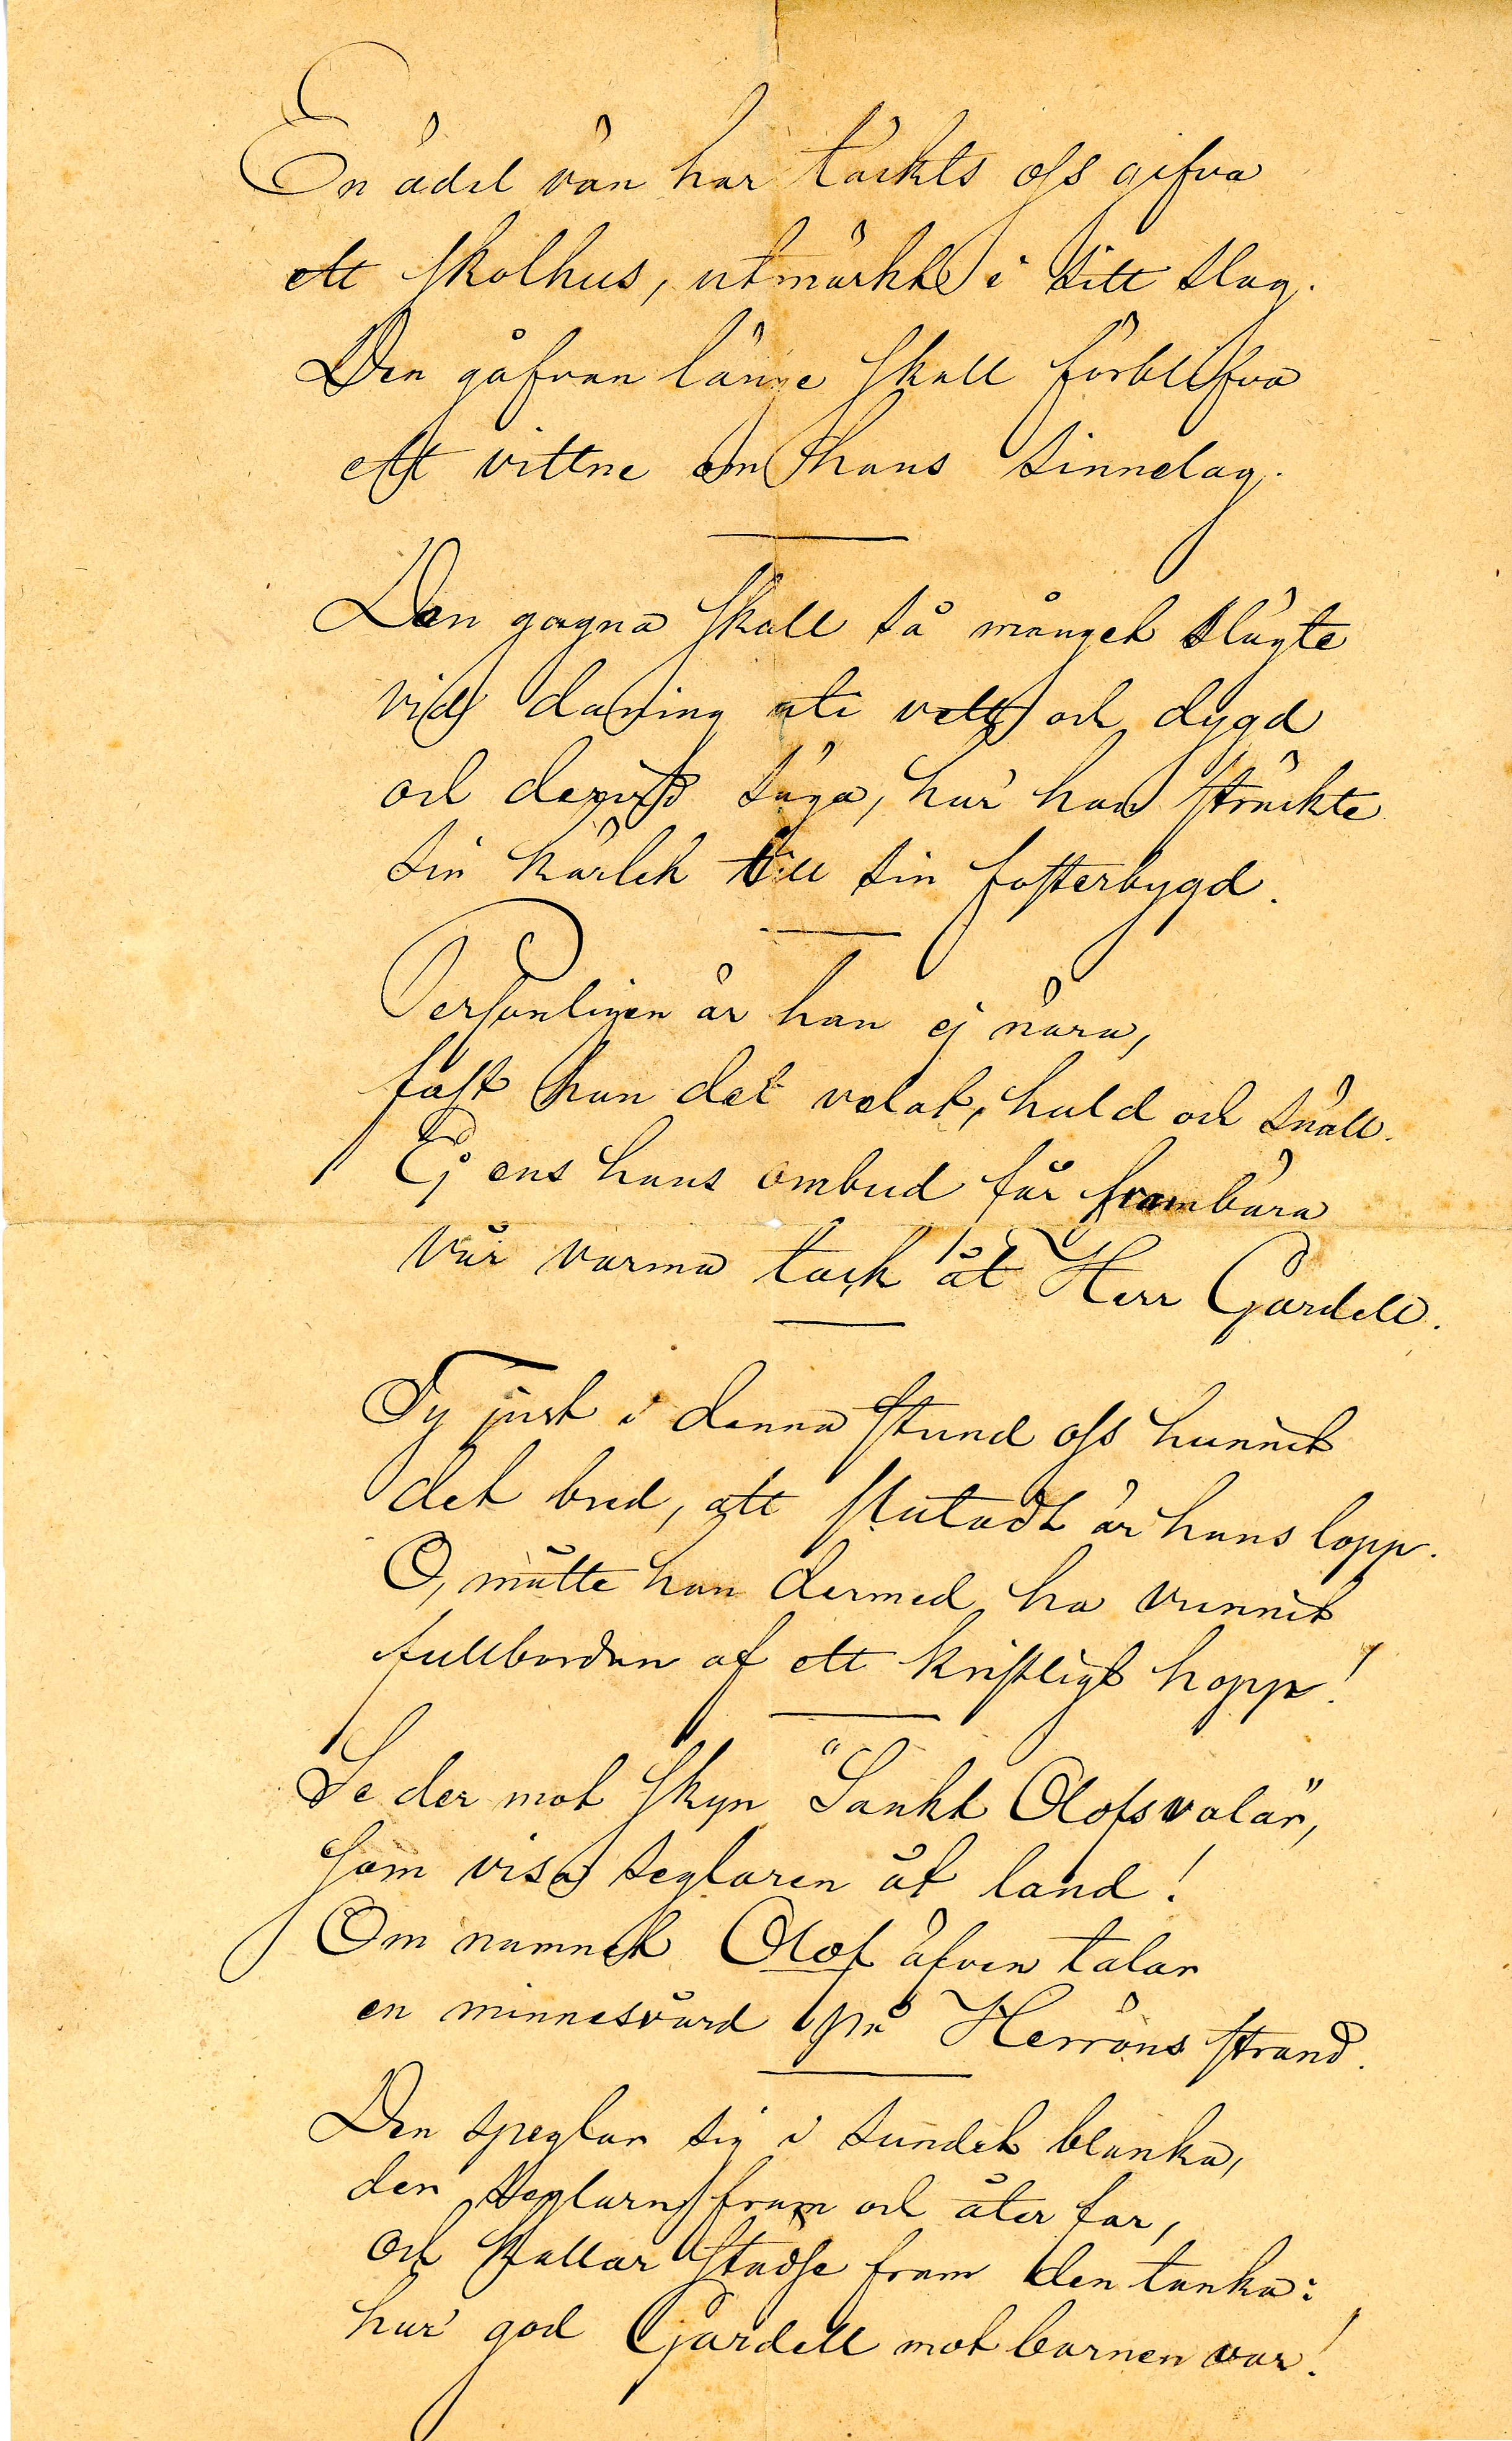 En ädel vän har täckts oss gifva
ett skolhus, utmärkt i sitt slag.
Den gåfvan länge skall förblifva
ett vittne om hans sinnelag.
Den gagna skall så månget slägte
vid daning uti vett och dygd
och derjets säga, hur' han sträckte
sin kärlek till sin fosterbygd.
Personligen är han ej nära,
fast han det velat, huld och snäll.
Ej ens hans ombud får frambära
vår varma tack åt Herr Gardell.
Ty just i denna stund oss hunnit
det bud, att slutadt är hans lopp.
O, måtte han dermed ha vunnit
fullbordan af ett kristligt hopp!
Se der mot skyn "Sankt Olofsvalar",
som visa seglaren åt land!
Om namnet Olof äfven talar
en minnesvård på Herröns strand.
Den speglar sig i sundet blanka,
der seglarn fram och åter far,
och kallar städse fram den tanka:
hur' god Gardell mot barnen var!